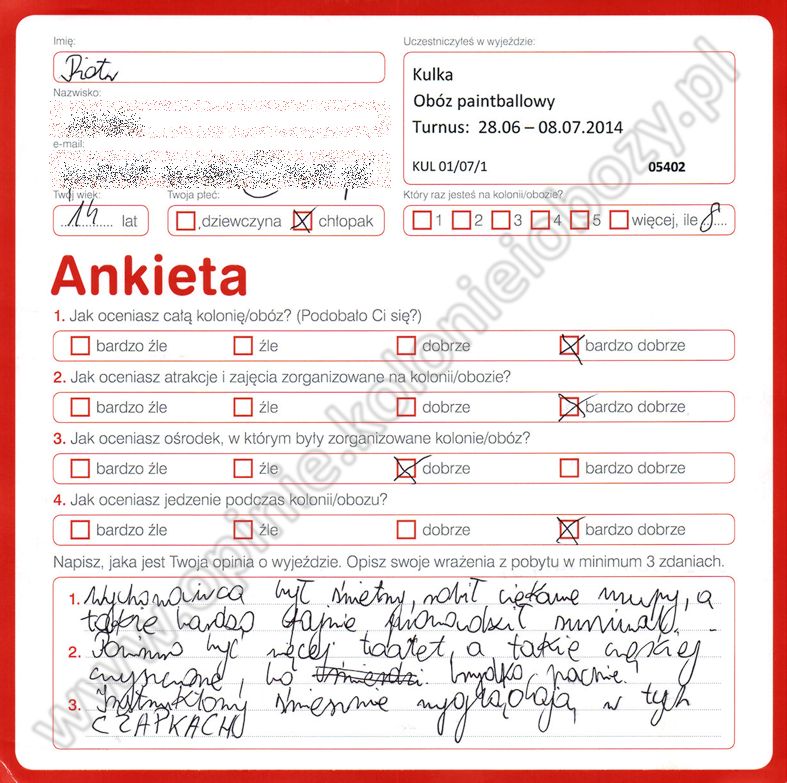 Imię:
Piotr
Nazwisko:
e-mail:
Twój wiek:
14 lat
Twoja płeć:
dziewczyna chłopak
Uczestniczyłeś w wyjeździe:
Kulka
Obóz paintballowy
Turnus: 28.06 – 08.07.2014
KUL 01/07/1 05402
Który raz jesteś na kolonii/obozie?
1 2 3 4 5 więcej, ile 8
Ankieta
1. Jak oceniasz całą kolonię/obóz? (Podobało Ci się?)
bardzo źle źle dobrze bardzo dobrze
2. Jak oceniasz atrakcje i zajęcia zorganizowane na kolonii/obozie?
bardzo źle źle dobrze bardzo dobrze
3. Jak oceniasz ośrodek, w którym były zorganizowane kolonie/obóz?
bardzo źle źle dobrze bardzo dobrze
4. Jak oceniasz jedzenie podczas kolonii/obozu?
bardzo źle źle dobrze bardzo dobrze
Napisz, jaka jest Twoja opinia o wyjeździe. Opisz swoje wrażenia z pobytu w minimum 3 zdaniach.
1. Wychowawca był świetny, robił ciekawe mapy, a
także bardzo fajnie prowadził survival.
2. Powinno być więcej toalet, a także częściej
czyszczone, bo śmierdzi brzydko pachnie.
3. Instruktorzy śmiesznie wyglądają w tych
CZAPKACH
www.opinie.kolonieiobozy.pl